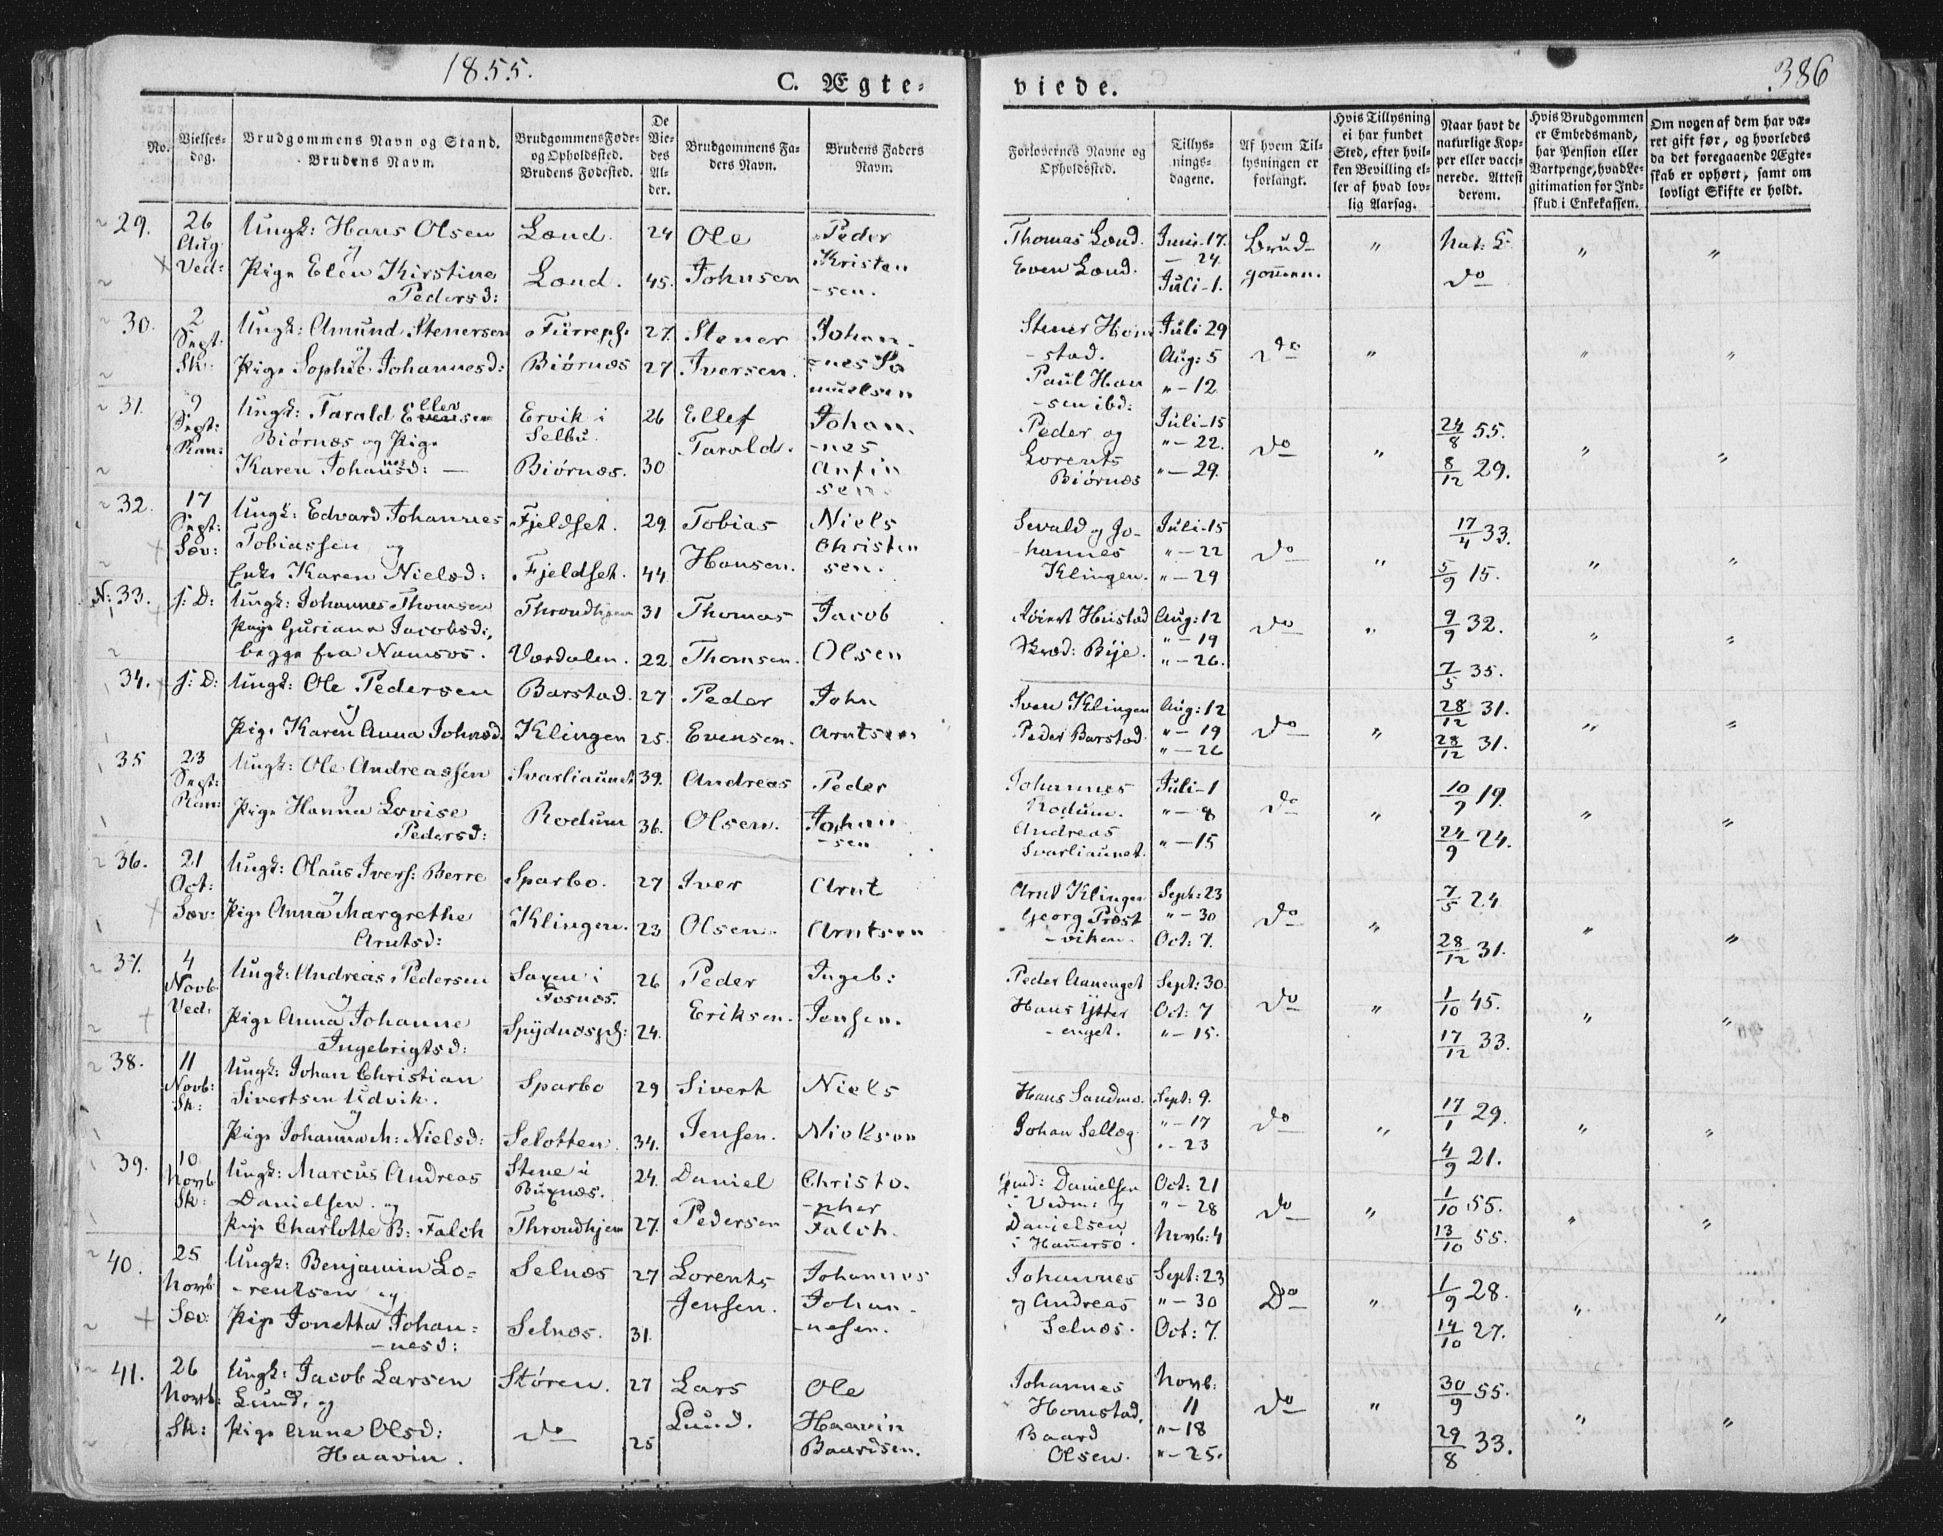 1855.
C. Ægte=
viede.
386
No.
Vielses-
dag.
Brudgommens Navn og Stand.
Brudens Navn.
Brudgommens Føde-
og Opholdssted.
Brudens Fødested.
De
Vie-
des
Al-
der.
Brudgommens Fa-
ders Navn.
Brudens Faders
Navn.
Forlovernes Navne og
Opholdssted.
Tillys-
nings-
dagene.
Af hvem Til-
lysningen er
forlangt.
Hvis Tillysning
ei har fundet
Sted, efter hvil-
ken Bevilling el-
ler af hvad lov-
lig Aarsag.
Naar havt de
naturlige Kop-
per eller vacci-
nerede. Attest
derom.
Hvis Brudgommen
er Embedsmand,
har Pension eller
Vartpenge, hvad Le-
gitimation for Ind-
skud i Enkekassen.
Om nogen af dem har væ-
ret gift før, og hvorledes
da det foregaaende Ægte-
skab er ophørt, samt om
lovligt Skifte er holdt.
29. 26 Aug. Ved:
Ungk: Hans Olsen Lænd. 24 Ole Peder
og
Pige Elen Kirstine Lænd. 45. Johnsen Kristen
Pedersd: -sen.
Thomas Lænd. Juni-17. Brud- " nat: K. " "
Even Lænd. — 24. gommen. do
Juli-1.
30. 2 Sept. Sk:
Ungk: Amund Stenersen 27. Stener Johan-
og
Pige Sophie Johannesd: Biørnæs 27 Iversen. -nes Sa
muelsen
Stener Hom Juli 29
-stad. Aug: 5 do " " "
Paul Han "-12
-sen ibd:
31. 9 Sept: Ran:
Ungk: Tarald Ellev Ervik i 26 Ellef Johan-
Biørnæs og Pige Selbu. Tarald. -nes
Karen Johannesd: — Biørnæs. 30 Anfin
sen.
Peder og Juli-15 24/8 55.
Lorents "-22. do " " "
Biørnæs "-29. 8/12 29.
32. 17 Sept: Sæv:
Ungk: Edvard Johannes Fjeldset. 29. Tobias Niels
Tobiassen og Christen
Enke Karen Nielsd: Fjeldset. 44. Hansen. sen.
Sevald og Jo- Juli-15 17/4 33.
-hannes "-22 do " " "
Klingen. "-29 5/9 15.
N: 33. s: D:
Ungk: Johannes Thomsen Throndhjem 31 Thomas Jacob
Pige Guriana Jacobsd:,
begge fra Namsos. Værdalen. 22. Thomsen. Olsen
Heistad Aug: 12 9/9 32.
Bye. "-19 do " " "
"-26. 7/5 35.
34. s: D:
Ungk: Ole Pedersen Barstad. 27 Peder John
og
Pige Karen Anna Johnsd. Klingen 25. Evensen. Arntsen
Sven Klingen Aug: 12 28/12 31.
Peder Barstad "-19 do " " "
"-26 28/12 31.
35 23 Sept: Ran:
Ungk: Ole Andreassen Svarliaunet 39. Andreas Peder
og
Pige Hanna Lovise Rodum 36. Olsen. Johan
Pedersd: -sen
Johannes Juli-1 10/9 19.
Rodum. "-8 do " " "
Andreas
Svarliaunet. "-15 24/9 24.
36. 21 Oct: Sæv:
Ungk: Olaus Ivers: Berre Sparbo. 27 Iver Arnt
og
Pige Anna Margrethe Klingen. 23 Olsen. Arntsen
Arntsd:
Arnt Klingen Sept: 23 7/5 24
Georg Præst "-30 do " " "
-viken. Oct: 7. 28/12 31.
37. 4 Novb. Ved:
Ungk: Andreas Pedersen Saxen i 26 Peder Ingeb:
og Fosnæs.
Pige Anna Johanne 24. Eriksen. Jensen.
Ingebrigtsd:
Peder Aunenget Sept: 30. 1/10 45.
Hans Ytter Oct: 7 do " " "
-enget. "-15. 17/12 33.
38. 11 Novb: Sk:
Ungk: Johan Christian Sparbo 29 Sivert Niels
Sivertsen Udvik.
og
Pige Johanna M: Nielsd: Selotten. 34. Jensen. Nielsen
Hans Sandmo. Sept: 9. 17/1 29.
Johan Selløg. "-17 do " " "
"-23 4/9 21.
39. 10 Novb. Sk:
Ungk: Marcus Andreas Stene i 24. Daniel Christo-
Danielsen og Buxnæs. -pher
Pige Charlotte B: Falch Throndhjem 27. Pedersen Falch.
Danielsen Oct: 21 1/10 55.
"-28 do " " "
Danielsen
i Hammersø. Novb: 4 13/10 55.
40. 25 Novb Sæv:
Ungk: Benjamin Lo= Selnæs 27 Lorents Johannes
-rentsen og
Pige Jonetta Johan= Selnæs. 31. Jensen. Johan-
-nesd: -nesen.
Johannes Sept: 23 1/9 28.
og Andreas "-30 Do " " "
Selnæs. Oct: 7. 14/10 27.
41. 26 Novb: Sk:
Ungk: Jacob Larsen Støren. 27 Lars Ole
Lund, og
Pige Anne Olsd: do 25 Lund. Haavin
Haavin. Baardsen.
Johannes Novb: 30/9 55.
Homstad. 11 do " " "
Baard "-18
Olsen. "-25. 29/8 33.